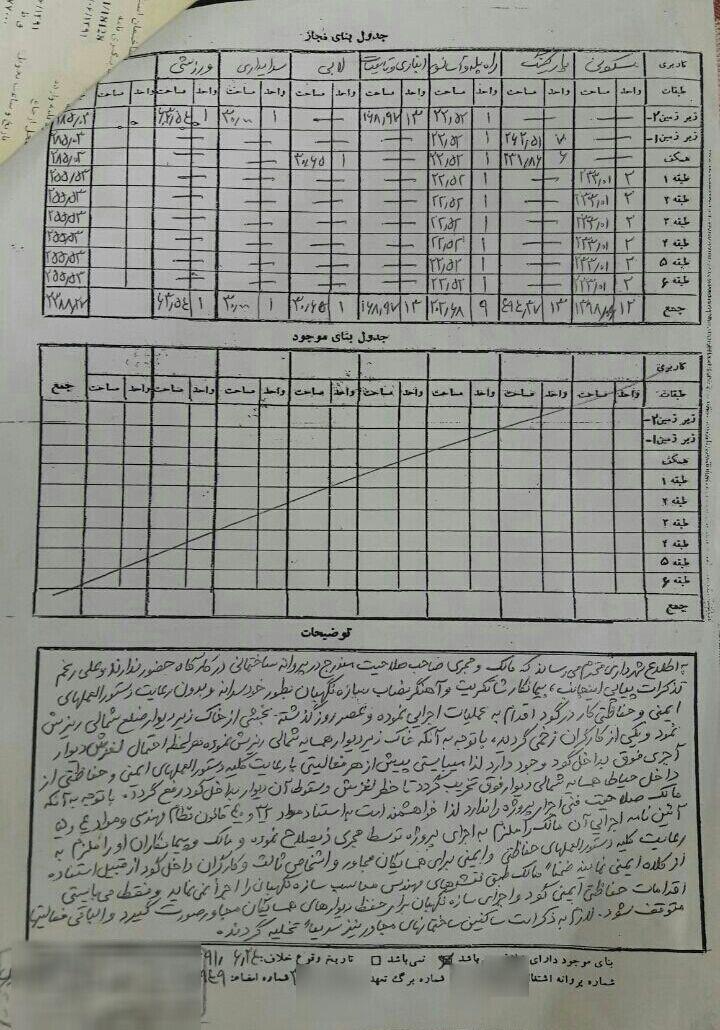 جدول بنای مجاز
کاربری مسکونی پارکینگ راه پله و آسانسور انباری و تاسیسات لابی سرایداری ورزشی
طبقات واحد مساحت واحد مساحت واحد مساحت واحد مساحت واحد مساحت واحد مساحت واحد مساحت واحد مساحت
زیر زمین ۲- — — ۱ ۲۲٫۵۲ ۱۳ ۱۶۸٫۹۷ — ۱ ۳۰٫۰۰ ۱ ۶۳٫۵۴
زیر زمین ۱- — ۷ ۲۶۲٫۵۱ ۱ ۲۲٫۵۲ — — — — ۲۸۵٫۰۳
همکف — ۶ ۲۳۱٫۸۶ ۱ ۲۲٫۵۲ — ۱ ۳۰٫۶۵ — — ۲۸۵٫۰۳
طبقه ۱ ۲ ۲۳۳٫۰۱ — ۱ ۲۲٫۵۲ — — — — ۲۵۵٫۵۳
طبقه ۲ ۲ ۲۳۳٫۰۱ — ۱ ۲۲٫۵۲ — — — — ۲۵۵٫۵۳
طبقه ۳ ۲ ۲۳۳٫۰۱ — ۱ ۲۲٫۵۲ — — — — ۲۵۵٫۵۳
طبقه ۴ ۲ ۲۳۳٫۰۱ — ۱ ۲۲٫۵۲ — — — — ۲۵۵٫۵۳
طبقه ۵ ۲ ۲۳۳٫۰۱ — ۱ ۲۲٫۵۲ — — — — ۲۵۵٫۵۳
طبقه ۶ ۲ ۲۳۳٫۰۱ — ۱ ۲۲٫۵۲ — — — — ۲۵۵٫۵۳
جمع ۱۲ ۱۳۹۸٫۰۶ ۱۳ ۴۹۴٫۳۷ ۹ ۲۰۲٫۶۸ ۱۳ ۱۶۸٫۹۷ ۱ ۳۰٫۶۵ ۱ ۳۰٫۰۰ ۱ ۶۳٫۵۴
جدول بنای موجود
کاربری
طبقات واحد مساحت واحد مساحت واحد مساحت واحد مساحت واحد مساحت واحد مساحت واحد مساحت واحد مساحت جمع
زیر زمین ۲-
زیر زمین ۱-
همکف
طبقه ۱
طبقه ۲
طبقه ۳
طبقه ۴
طبقه ۵
طبقه ۶
جمع
توضیحات
به اطلاع شهرداری محترم می رساند که مالک و مجری صاحب صلاحیت مندرج در پروانه ساختمانی در کارگاه حضور ندارند و علی رغم
تذکرات پیاپی اینجانب، پیمانکار شاتکریت و آهنگر نصاب سازه نگهبان بطور خودسرانه و بدون رعایت دستورالعملهای
ایمنی و حفاظتی کار در گود اقدام به عملیات اجرایی نموده و عصر روز گذشته بخشی از خاک زیر دیوار ضلع شمالی ریزش
نمود و یکی از کارگران زخمی گردید، با توجه به آنکه خاک زیر دیوار همسایه شمالی ریزش نموده هر لحظه احتمال لغزش دیوار
آجری فوق به داخل گود وجود دارد لذا میبایستی پیش از هر فعالیتی با رعایت کلیه دستورالعملهای ایمنی و حفاظتی از
داخل حیاط همسایه شمالی دیوار فوق تخریب گردد تا خطر لغزش و سقوط آن دیوار به داخل گود رفع گردد. با توجه به آنکه
مالک صلاحیت فنی اجرای پروژه را ندارد لذا خواهشمند است به استناد مواد ۳۴ و ۴۰ قانون نظام مهندسی و مواد ۴ و ۵
آئین نامه اجرایی آن مالک را ملزم به اجرای پروژه توسط مجری ذیصلاح نموده و مالک و پیمانکاران او را ملزم به
رعایت کلیه دستورالعملهای حفاظتی و ایمنی برای همسایگان مجاور و اشخاص ثالث و کارگران داخل گود از قبیل استفاده
از کلاه ایمنی نمایند ضمناً مالک طبق نقشه های مهندس محاسب سازه نگهبان را اجرا نمی نماید و فقط می بایستی
اقدامات حفاظتی ایمنی گود و اجرای سازه نگهبان برای حفظ دیوارهای همسایگان مجاور صورت گیرد و الباقی فعالیتها
متوقف شود. لازم به ذکر است ساکنین ساختمانهای مجاور نیز سریعاً تخلیه گردند.
بنای موجود دارای باشد ☒ نمی باشد ☐ تاریخ وقوع خلاف: ۹۱٫۶٫۲۴
شماره پروانه شماره برگ تعهد شماره